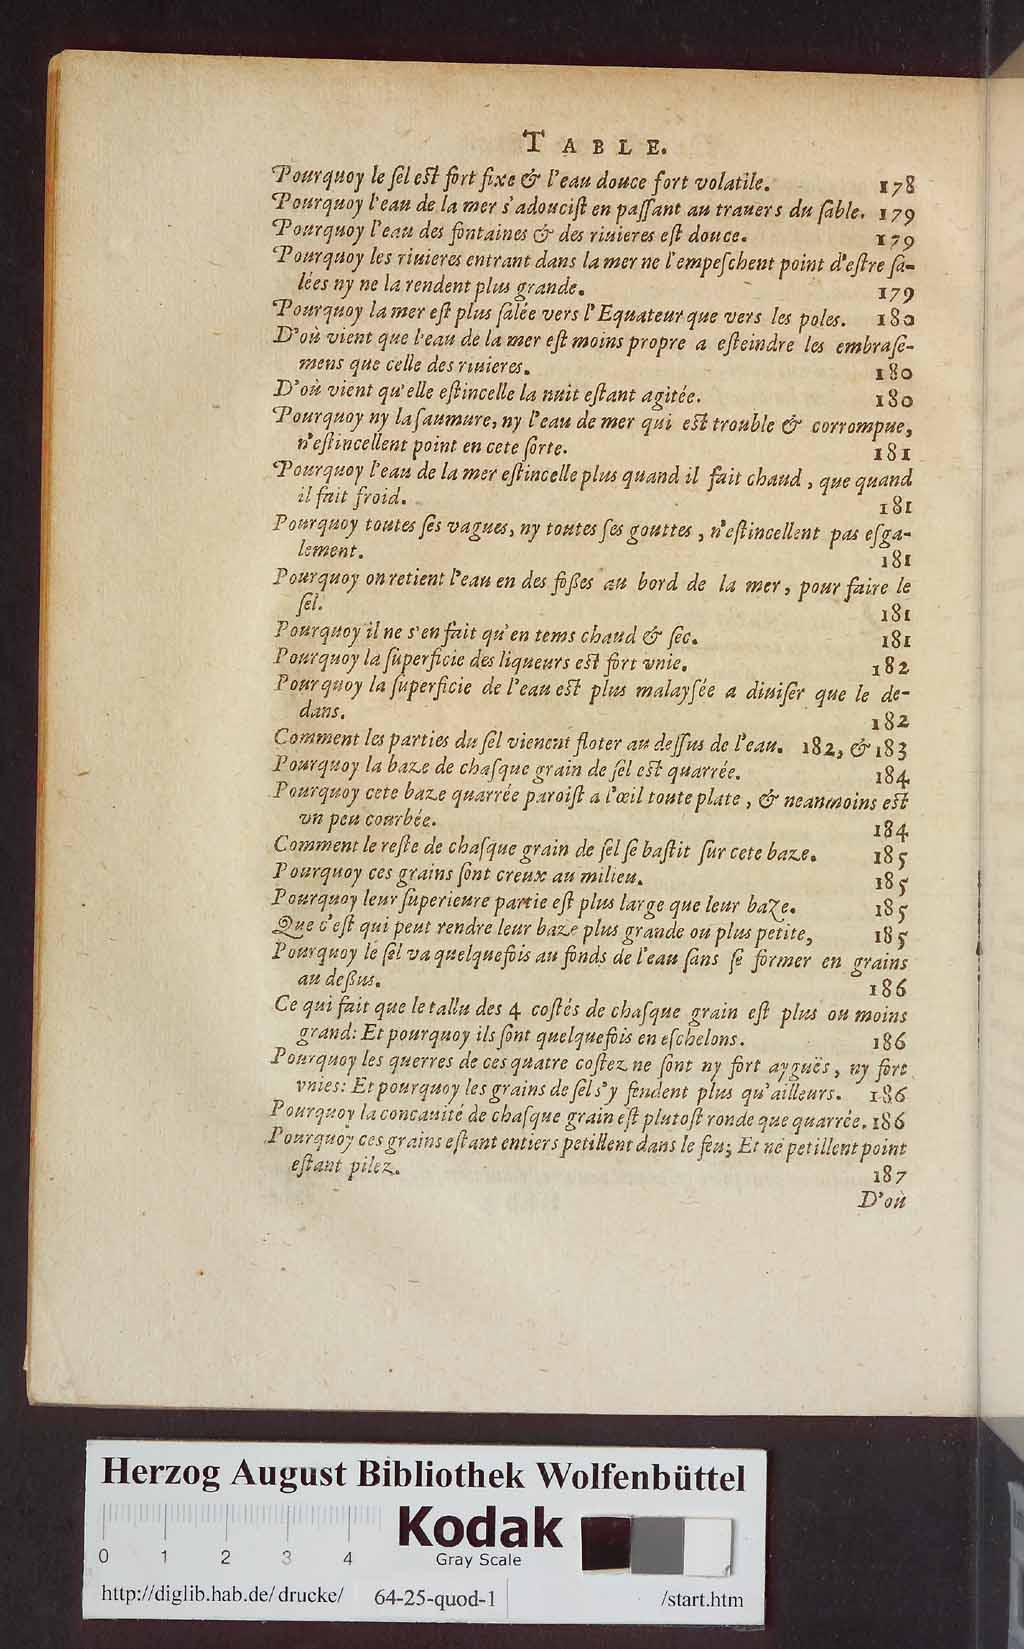 TABLE.
Pourquoy le ſel est fort fixe & l'eau douce fort volatile. 178
Pourquoy l'eau de la mer s'adouciſt en paſſant au trauers du ſable. 179
Pourquoy l'eau des fontaines & des riuieres eſt douce. 179
Pourquoy les riuieres entrant dans la mer ne l'empeſchent point d'eſtre ſa-
lées ny ne la rendent plus grande. 179
Pourquoy la mer eſt plus ſalée vers l'Equateur que vers les poles. 180
D'où vient que l'eau de la mer eſt moins propre a eſteindre les embraſe-
mens que celle des riuieres. 180
D'où vient qu'elle eſtincelle la nuit eſtant agitée. 180
Pourquoy ny la ſaumure, ny l'eau de mer qui est trouble & corrompue,
n'eſtincellent point en cete ſorte. 181
Pourquoy l'eau de la mer eſtincelle plus quand il fait chaud, que quand
il fait froid. 181
Pourquoy toutes ſes vagues, ny toutes ſes gouttes, n'eſtincellent pas eſga-
lement. 181
Pourquoy on retient l'eau en des foßes au bord de la mer, pour faire le
ſel. 181
Pourquoy il ne s'en fait qu'en tems chaud & ſec. 181
Pourquoy la ſuperficie des liqueurs est fort vnie. 182
Pourquoy la ſuperficie de l'eau est plus malayſée a diuiſer que le de-
dans. 182
Comment les parties du ſel vienent floter au deſſus de l'eau. 182, & 183
Pourquoy la baze de chaſque grain de ſel est quarrée. 184
Pourquoy cete baze quarrée paroiſt a l'œil toute plate, & neanmoins est
vn peu courbée. 184
Comment le reſte de chaſque grain de ſel ſe baſtit ſur cete baze. 185
Pourquoy ces grains ſont creux au milieu. 185
Pourquoy leur ſuperieure partie eſt plus large que leur baze. 185
Que c'eſt qui peut rendre leur baze plus grande ou plus petite, 185
Pourquoy le ſel va quelquefois au fonds de l'eau ſans ſe former en grains
au deßus. 186
Ce qui fait que le tallu des 4 coſtés de chaſque grain eſt plus ou moins
grand: Et pourquoy ils ſont quelquefois en eſchelons. 186
Pourquoy les querres de ces quatre coſtez ne ſont ny fort ayguës, ny fort
vnies: Et pourquoy les grains de ſel s'y fendent plus qu'ailleurs. 186
Pourquoy la concauité de chaſque grain eſt plutoſt ronde que quarrée. 186
Pourquoy ces grains eſtant entiers petillent dans le feu; Et ne petillent point
eſtant pilez. 187
D'où
Herzog August Bibliothek Wolfenbüttel
Kodak
Gray Scale
0 1 2 3 4
http://diglib.hab.de/drucke/ 64-25-quod-1 /start.htm